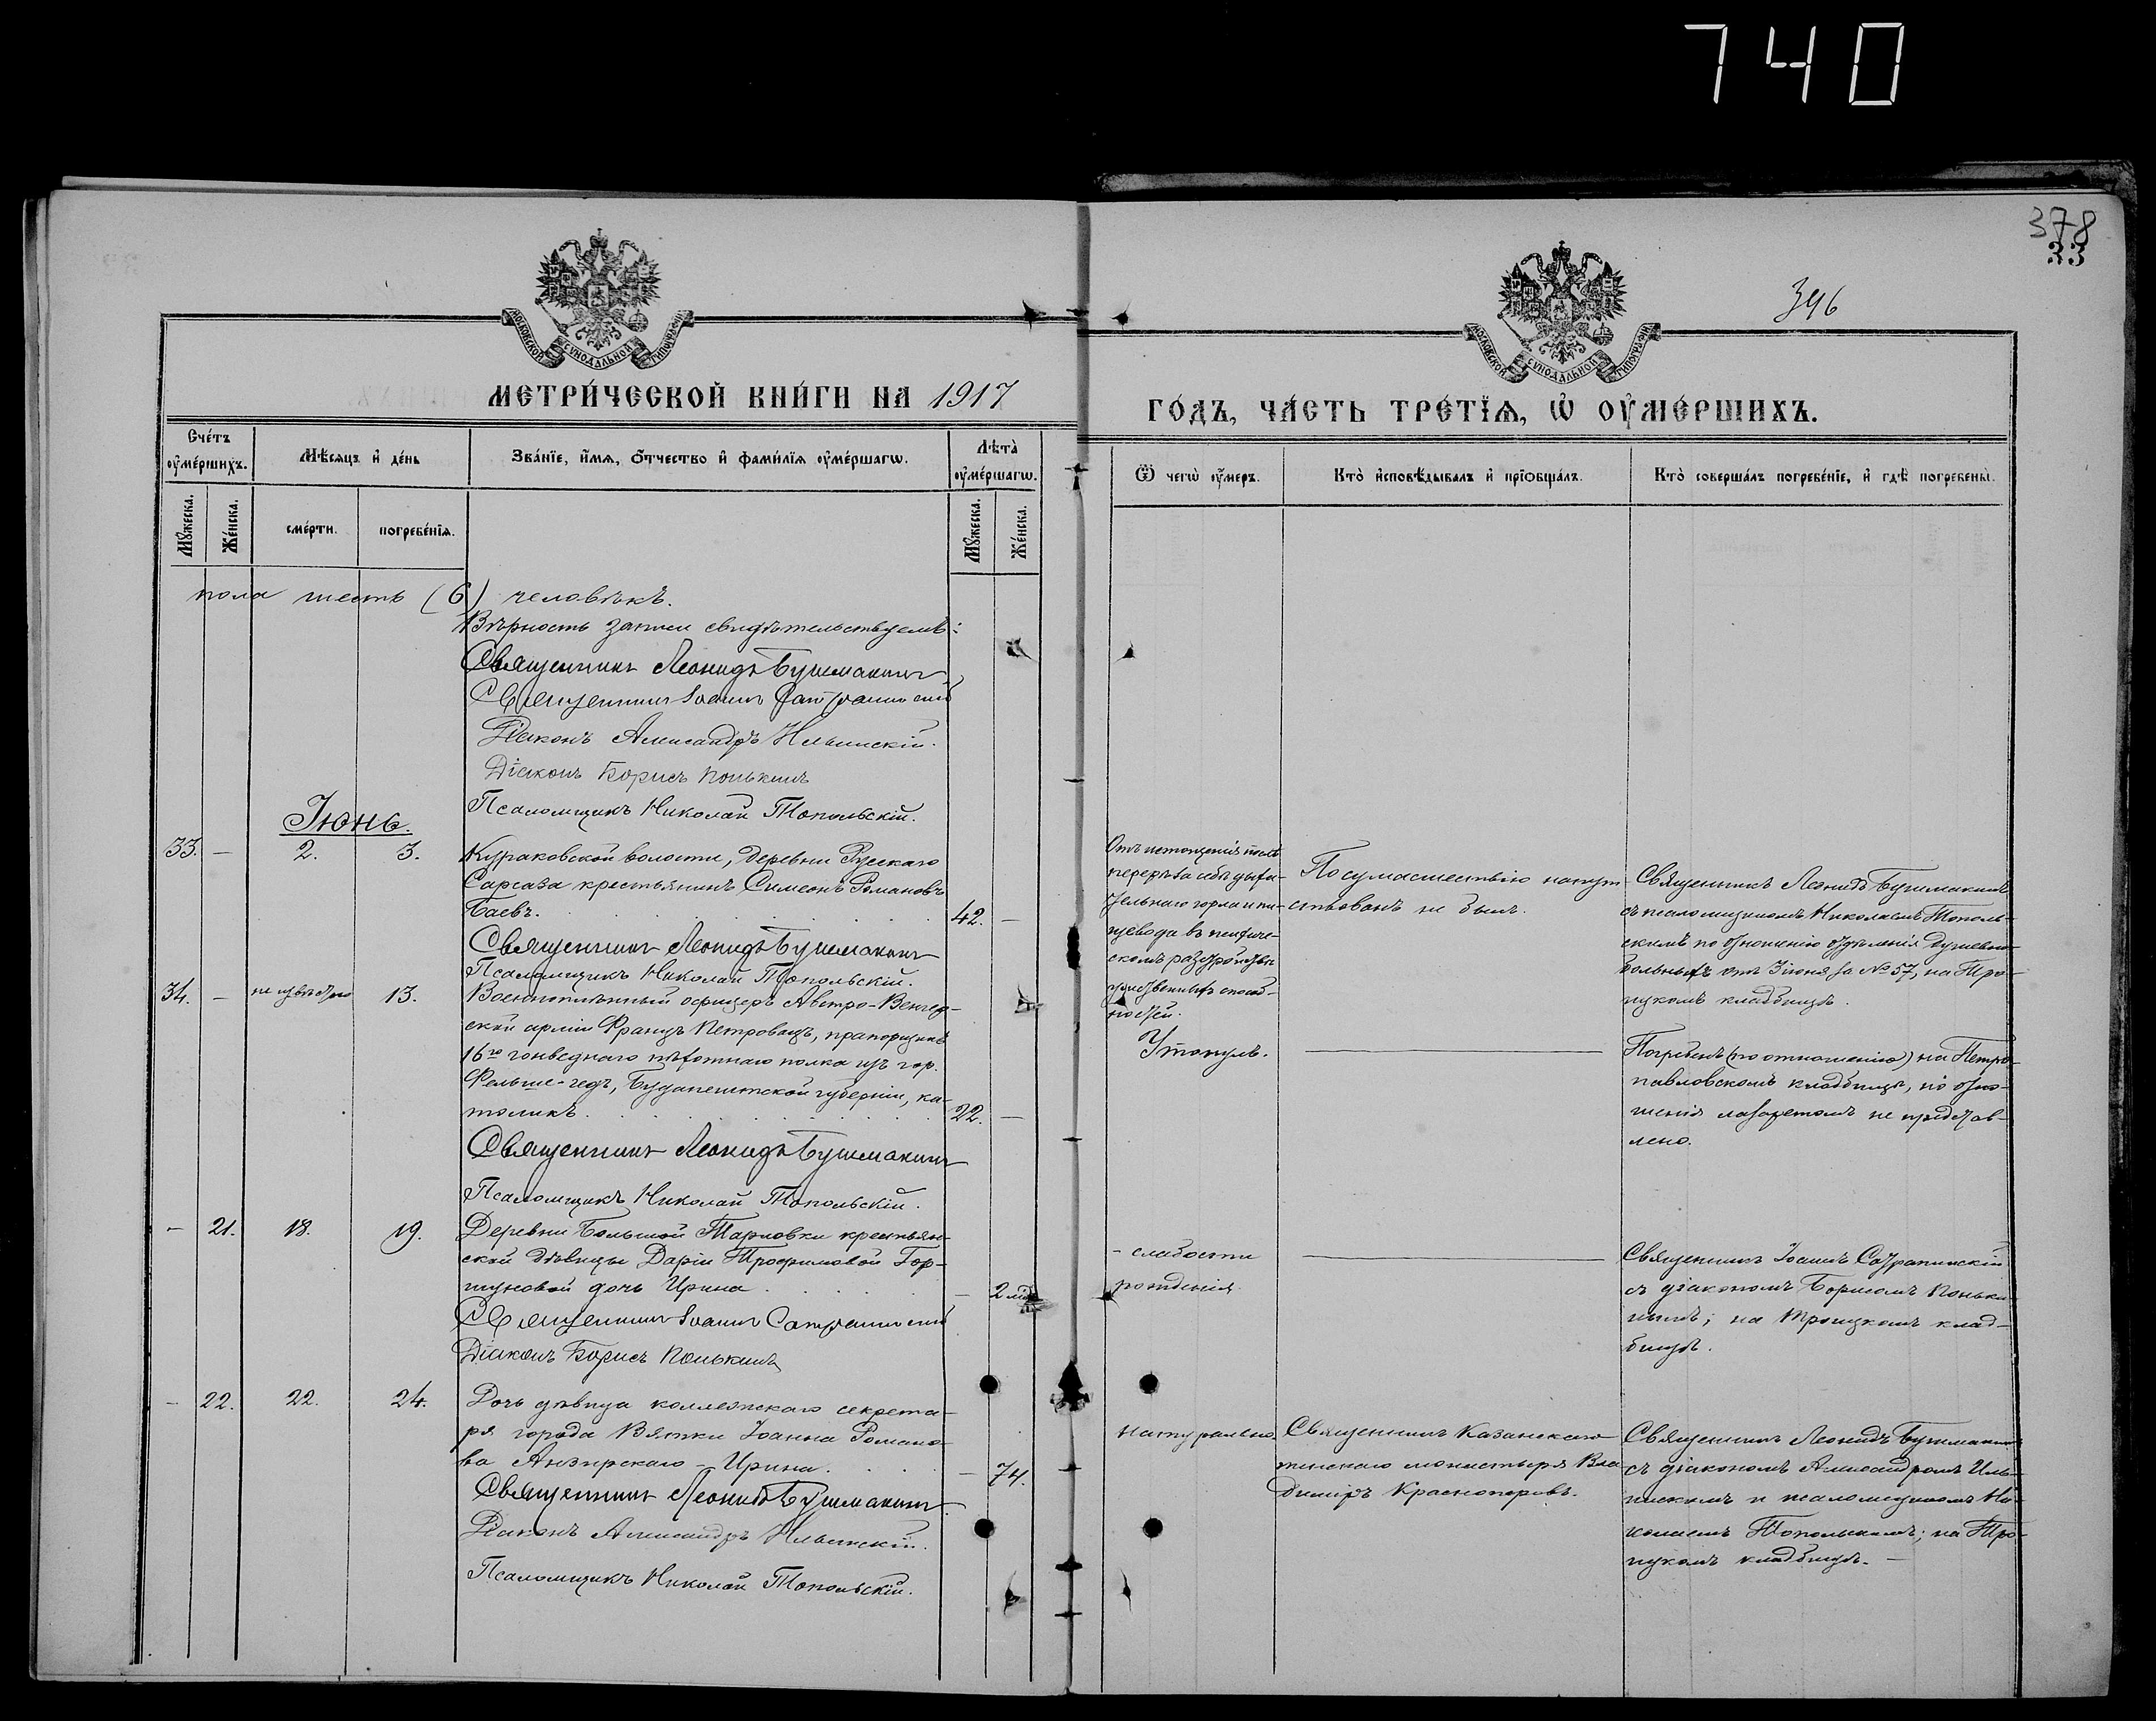 740
378
33
396
МОСКОВСКОЙ СѴНОДАЛЬНОЙ ТИПОГРАФІИ
МОСКОВСКОЙ СѴНОДАЛЬНОЙ ТИПОГРАФІИ
МЕТРИ́ЧЕСКОЙ КНИ́ГИ НА 1917
ГО́ДЪ, ЧА́СТЬ ТРЕ́ТЇѦ, Ѡ҆ ОУ҆МЕ́РШИХЪ.
Сче́тъ оу҆ме́ршихъ.
Мѣсѧцъ и҆ де́нь
Зва́нїе, и҆́мѧ, ѻ҆́тчество и҆ фами́лїѧ оу҆ме́ршагѡ.
Лѣта̀ оу҆ме́ршагѡ.
Ѿ чегѡ̀ оу҆́меръ.
Кто̀ и҆сповѣ́дывалъ и҆ прїѡбща́лъ.
Кто̀ соверша́лъ погребе́нїе, и҆ гдѣ̀ погребены̀.
Мꙋ́жеска.
Же́нска.
сме́рти.
погребе́нїѧ.
Мꙋ́жеска.
Же́нска.
пола шесть (6) человѣкъ.
Вѣрность записи свидѣтельствуемъ:
Священникъ Леонидъ Бушмакинъ
Священникъ Іоаннъ Сатрапинскій
Діаконъ Александръ Ильинскій.
Діаконъ Борисъ Понькинъ
Псаломщикъ Николай Топольскій.
Іюнь.
33. — 2. 3.
Кураковской волости, деревни Русскаго
Сарсаза крестьянинъ Симеонъ Романовъ
Баевъ. 42. —
Священникъ Леонидъ Бушмакинъ
Псаломщикъ Николай Топольскій.
Отъ истощенія послѣ
перерѣза себѣ дыха-
тельнаго горла и пи-
щевода въ психиче-
скомъ разстройствѣ
умственныхъ способ-
ностей.
По сумасшествію напут-
ствованъ не былъ.
Священникъ Леонидъ Бушмакинъ
съ псаломщикомъ Николаемъ Тополь-
скимъ по отношенію отдѣленія душевно-
больныхъ отъ 3 іюня за № 57, на Тро-
ицкомъ кладбищѣ.
34. — не извѣстно 13.
Военноплѣнный офицеръ Австро-Венгер-
ской арміи Францъ Петровацъ, прапорщикъ
16го гонведнаго пѣхотнаго полка изъ гор.
Фельше-гедъ, Будапештской губерніи, ка-
толикъ. 22. —
Священникъ Леонидъ Бушмакинъ
Псаломщикъ Николай Топольскій.
Утонулъ.
Погребенъ (по отношенію) на Петро-
павловскомъ кладбищѣ, но отно-
шенія лазаретомъ не представ-
лено.
— 21. 18. 19.
Деревни Большой Тарловки крестьян-
ской дѣвицы Даріи Трофимовой Гор-
шуновой дочь Ирина — 2 мѣс.
Священникъ Іоаннъ Сатрапинскій
Діаконъ Борисъ Понькинъ
- слабости
рожденія.
Священникъ Іоаннъ Сатрапинскій
съ діакономъ Борисомъ Понькин-
нымъ; на Троицкомъ клад-
бищѣ.
— 22. 22. 24.
Дочь дѣвица коллежскаго секрета-
ря города Вятки Іоанна Романо-
ва Анзирскаго - Ирина. — 74.
Священникъ Леонидъ Бушмакинъ
Діаконъ Александръ Ильинскій.
Псаломщикъ Николай Топольскій.
натурально
Священникъ Казанскаго
женскаго монастыря Вла-
димиръ Красноперовъ.
Священникъ Леонидъ Бушмакинъ
съ діакономъ Александромъ Иль-
инскимъ и псаломщикомъ Ни-
колаемъ Топольскимъ; на Тро-
ицкомъ кладбищѣ. —